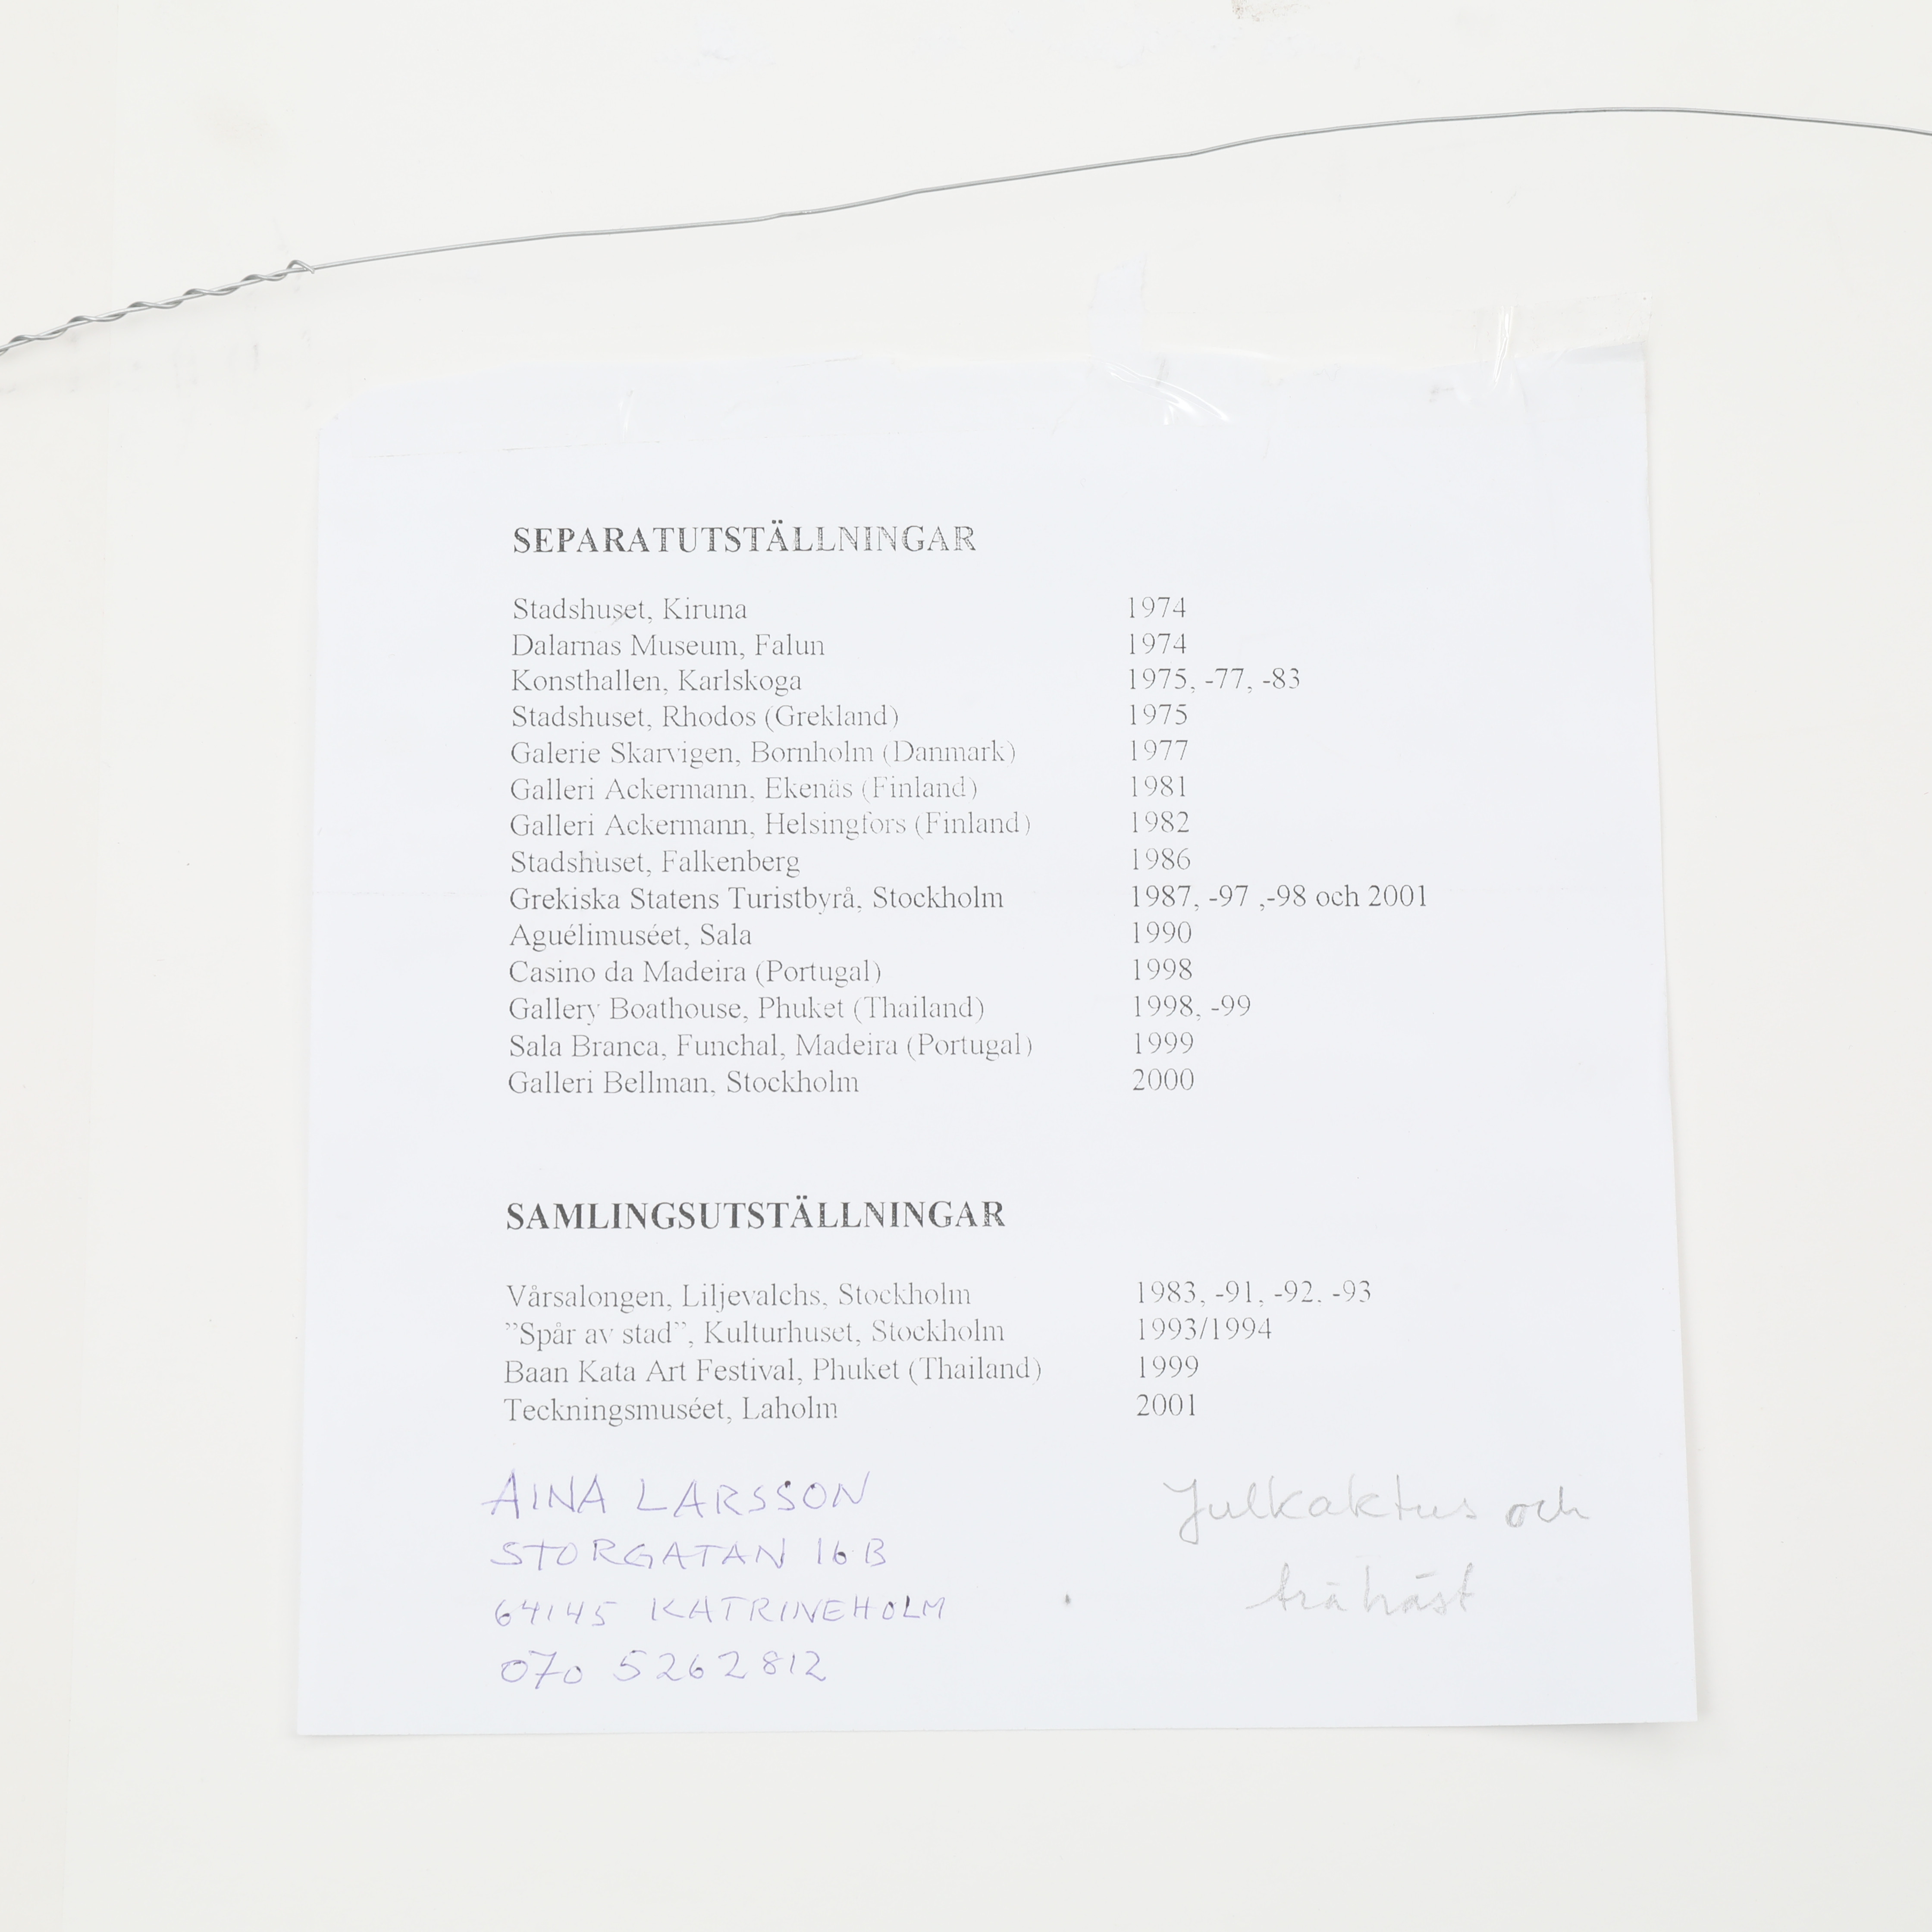 SEPARATUTSTÄLLNINGAR
Stadshuset, Kiruna 1974
Dalarnas Museum, Falun 1974
Konsthallen, Karlskoga 1975, -77, -83
Stadshuset, Rhodos (Grekland) 1975
Galerie Skarvigen, Bornholm (Danmark) 1977
Galleri Ackermann, Ekenäs (Finland) 1981
Galleri Ackermann, Helsingfors (Finland) 1982
Stadshuset, Falkenberg 1986
Grekiska Statens Turistbyrå, Stockholm 1987, -97 ,-98 och 2001
Aguélimuséet, Sala 1990
Casino da Madeira (Portugal) 1998
Gallery Boathouse, Phuket (Thailand) 1998, -99
Sala Branca, Funchal, Madeira (Portugal) 1999
Galleri Bellman, Stockholm 2000
SAMLINGSUTSTÄLLNINGAR
Vårsalongen, Liljevalchs, Stockholm 1983, -91, -92. -93
”Spår av stad”, Kulturhuset, Stockholm 1993/1994
Baan Kata Art Festival, Phuket (Thailand) 1999
Teckningsmuséet, Laholm 2001
AINA LARSSON
STORGATAN 16 B
64145 KATRINEHOLM
070 5262812
Julkaktus och
trähäst